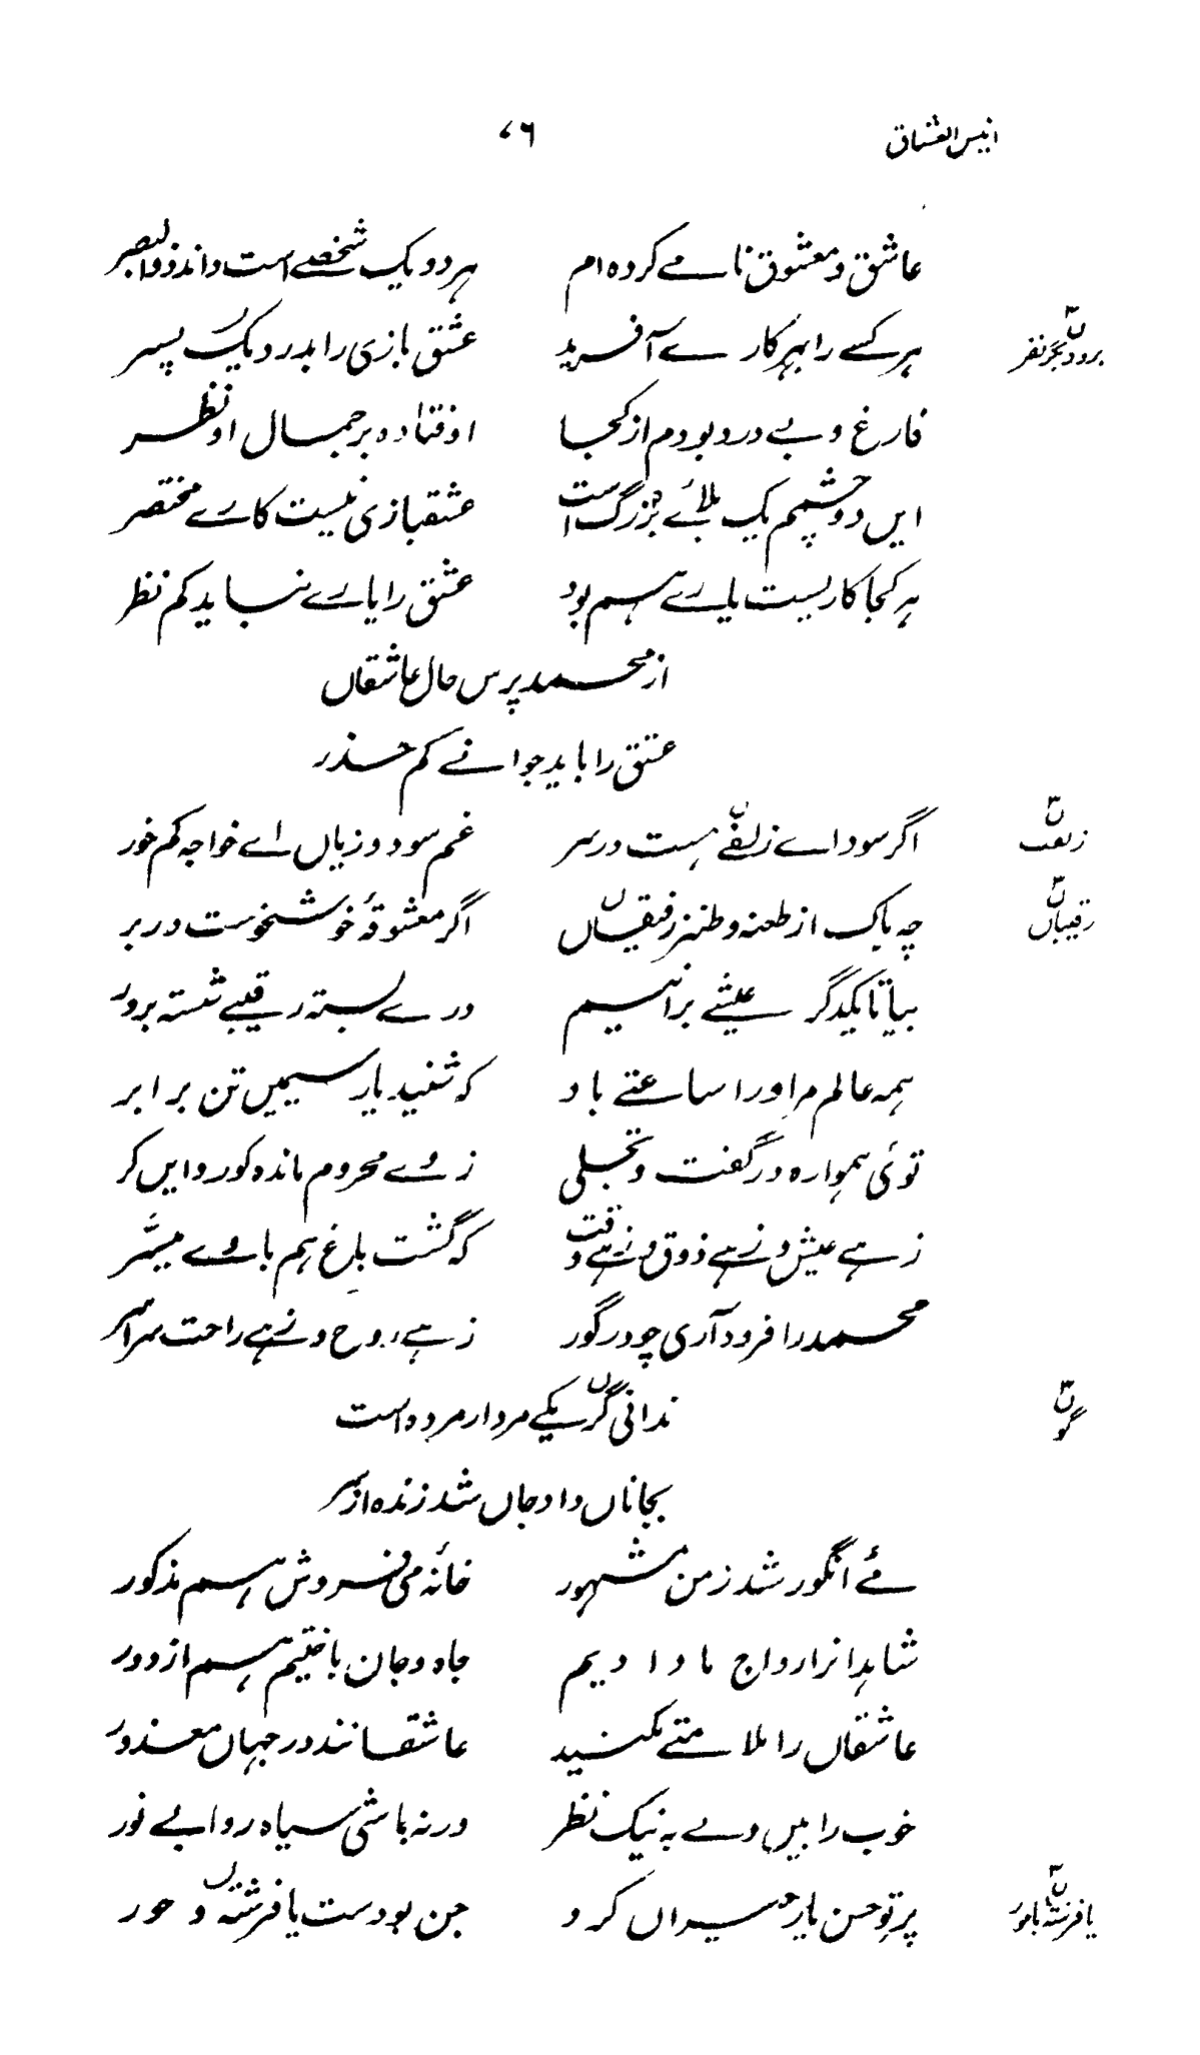 انیس العشاق ۷۶
عاشق و معشوق نامے کردہ ام ہر دو یک شخصے است داند ذو البصر
ہر کسے را بہر کارے آفرید عشق بازی را پدر دیک پسر
برو دیگر نفر
فارغ و بے درد بودم از کجا اوفتادہ بر جمال او نظر
ایں دو چشمم یک بلائے بزرگ است عشقبازی نیست کارے مختصر
ہر کجا کاریست یارے ہم بود عشق را یارے نباید کم نظر
از محمد پرس حال عاشقاں
عشق را باید جوانے کم حذر
اگر سوداے زلفے ہست در سر غم سود و زیاں اے خواجہ کم خور
ن زلفت
چہ باک از طعنہ و طنز رفیقاں اگر معشوقۂ خوشخوست در بر
ن رقیباں
بیا تا یکدگر عیشے برانیم درے بستہ رقیبے شستہ بر در
ہمہ عالم مر اورا ساعتے باد کہ شنید یار سیمیں تن برابر
توئی ہموارہ در گفت و تجلی ز وے محروم ماندہ کور و ایں کر
زہے عیش و زہے ذوق و زہے وقت کہ گشت باغ ہم با وے میسّر
محمد را فرود آری چو در گور زہے روح و زہے راحت سراسر
ندانی گر یکے مردار مردہ است
ن گو
بجاناں داد جاں شد زندہ از سر
مئے انگور شد ز من مشہور خانۂ می فروش ہم مذکور
شاہدانرا رواج ما دادیم جاہ و جان باختیم ہم از دور
عاشقاں را ملامتے مکنید عاشقانند در جہاں معذور
خوب را بیں ولے بہ نیک نظر ورنہ باشی سیاہ رو اے بے نور
پرتو حسن یار حیراں کرد جن بودست یا فرشتہ و حور
ن یا فرشتہ یا حور